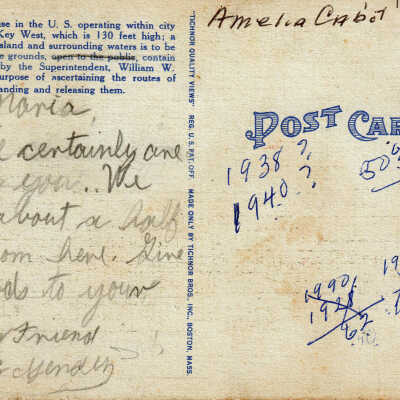 se in the U. S. operating within city
Key West, which is 130 feet high; a
sland and surrounding waters is to be
e grounds, open to the public, contain
by the Superintendent, William W.
urpose of ascertaining the routes of
anding and releasing them.
Maria,
certainly are
you.. We
about a half
om here. Give
ds to your
Friend
Mendez
"TICHNOR QUALITY VIEWS" REG. U. S. PAT. OFF. MADE ONLY BY TICHNOR BROS., INC., BOSTON, MASS.
Amelia Cabot
POST CAR
1938 ?
1940 ?
50
1990
1928
62
19